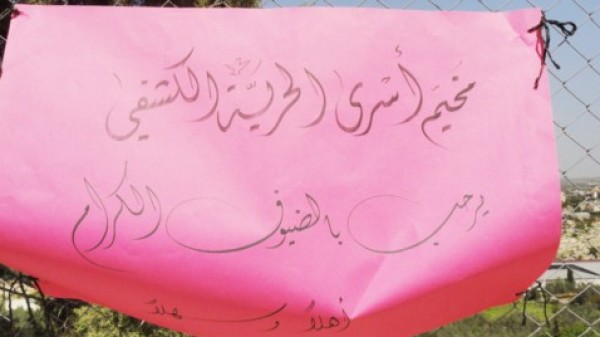 مخيم أسرى الحرية الكشفي
يرحب بالضيوف الكرام
أهلاً وسهلاً